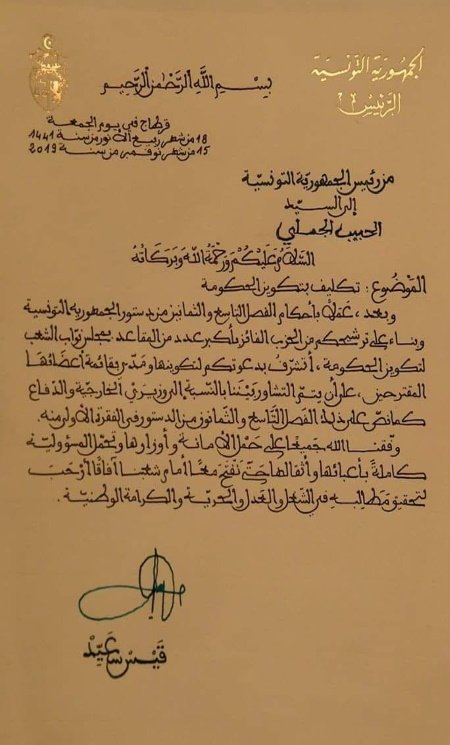 الجمهورية التونسية
الرئيس
بسم الله الرحمن الرحيم
قرطاج في يوم الجمعة
18 من شهر ربيع الأنور من سنة 1441
15 من شهر نوفمبر من سنة 2019
من رئيس الجمهورية التونسية
إلى السيد
الحبيب الجملي
السَّلَامُ عَلَيْكُمْ وَرَحْمَةُ اللَّهِ وَبَرَكَاتُهُ
الموضوع : تكليف بتكوين الحكومة
وبعد، عملا بأحكام الفصل التاسع والثمانين من دستور الجمهورية التونسية
وبناء على ترشيحكم من الحزب الفائز بأكبر عدد من المقاعد بمجلس نواب الشعب
لتكوين الحكومة، أتشرّف بدعوتكم لتكوينها ومدّي بقائمة أعضائها
المقترحين، على أن يتمّ التشاور بيننا بالنسبة إلى وزيري الخارجية والدفاع
كما نصّ على ذلك الفصل التاسع والثمانون من الدستور في الفقرة الأولى منه.
وفقنا الله جميعا على حمل الأمانة وأوزارها وتحمّل المسؤولية
كاملة بأعبائها وأثقالها حتّى نفتح معا أمام شعبنا آفاقا أرحب
لتحقيق مطالبه في الشغل والعدل والحرية والكرامة الوطنية.
قيس سعيّد